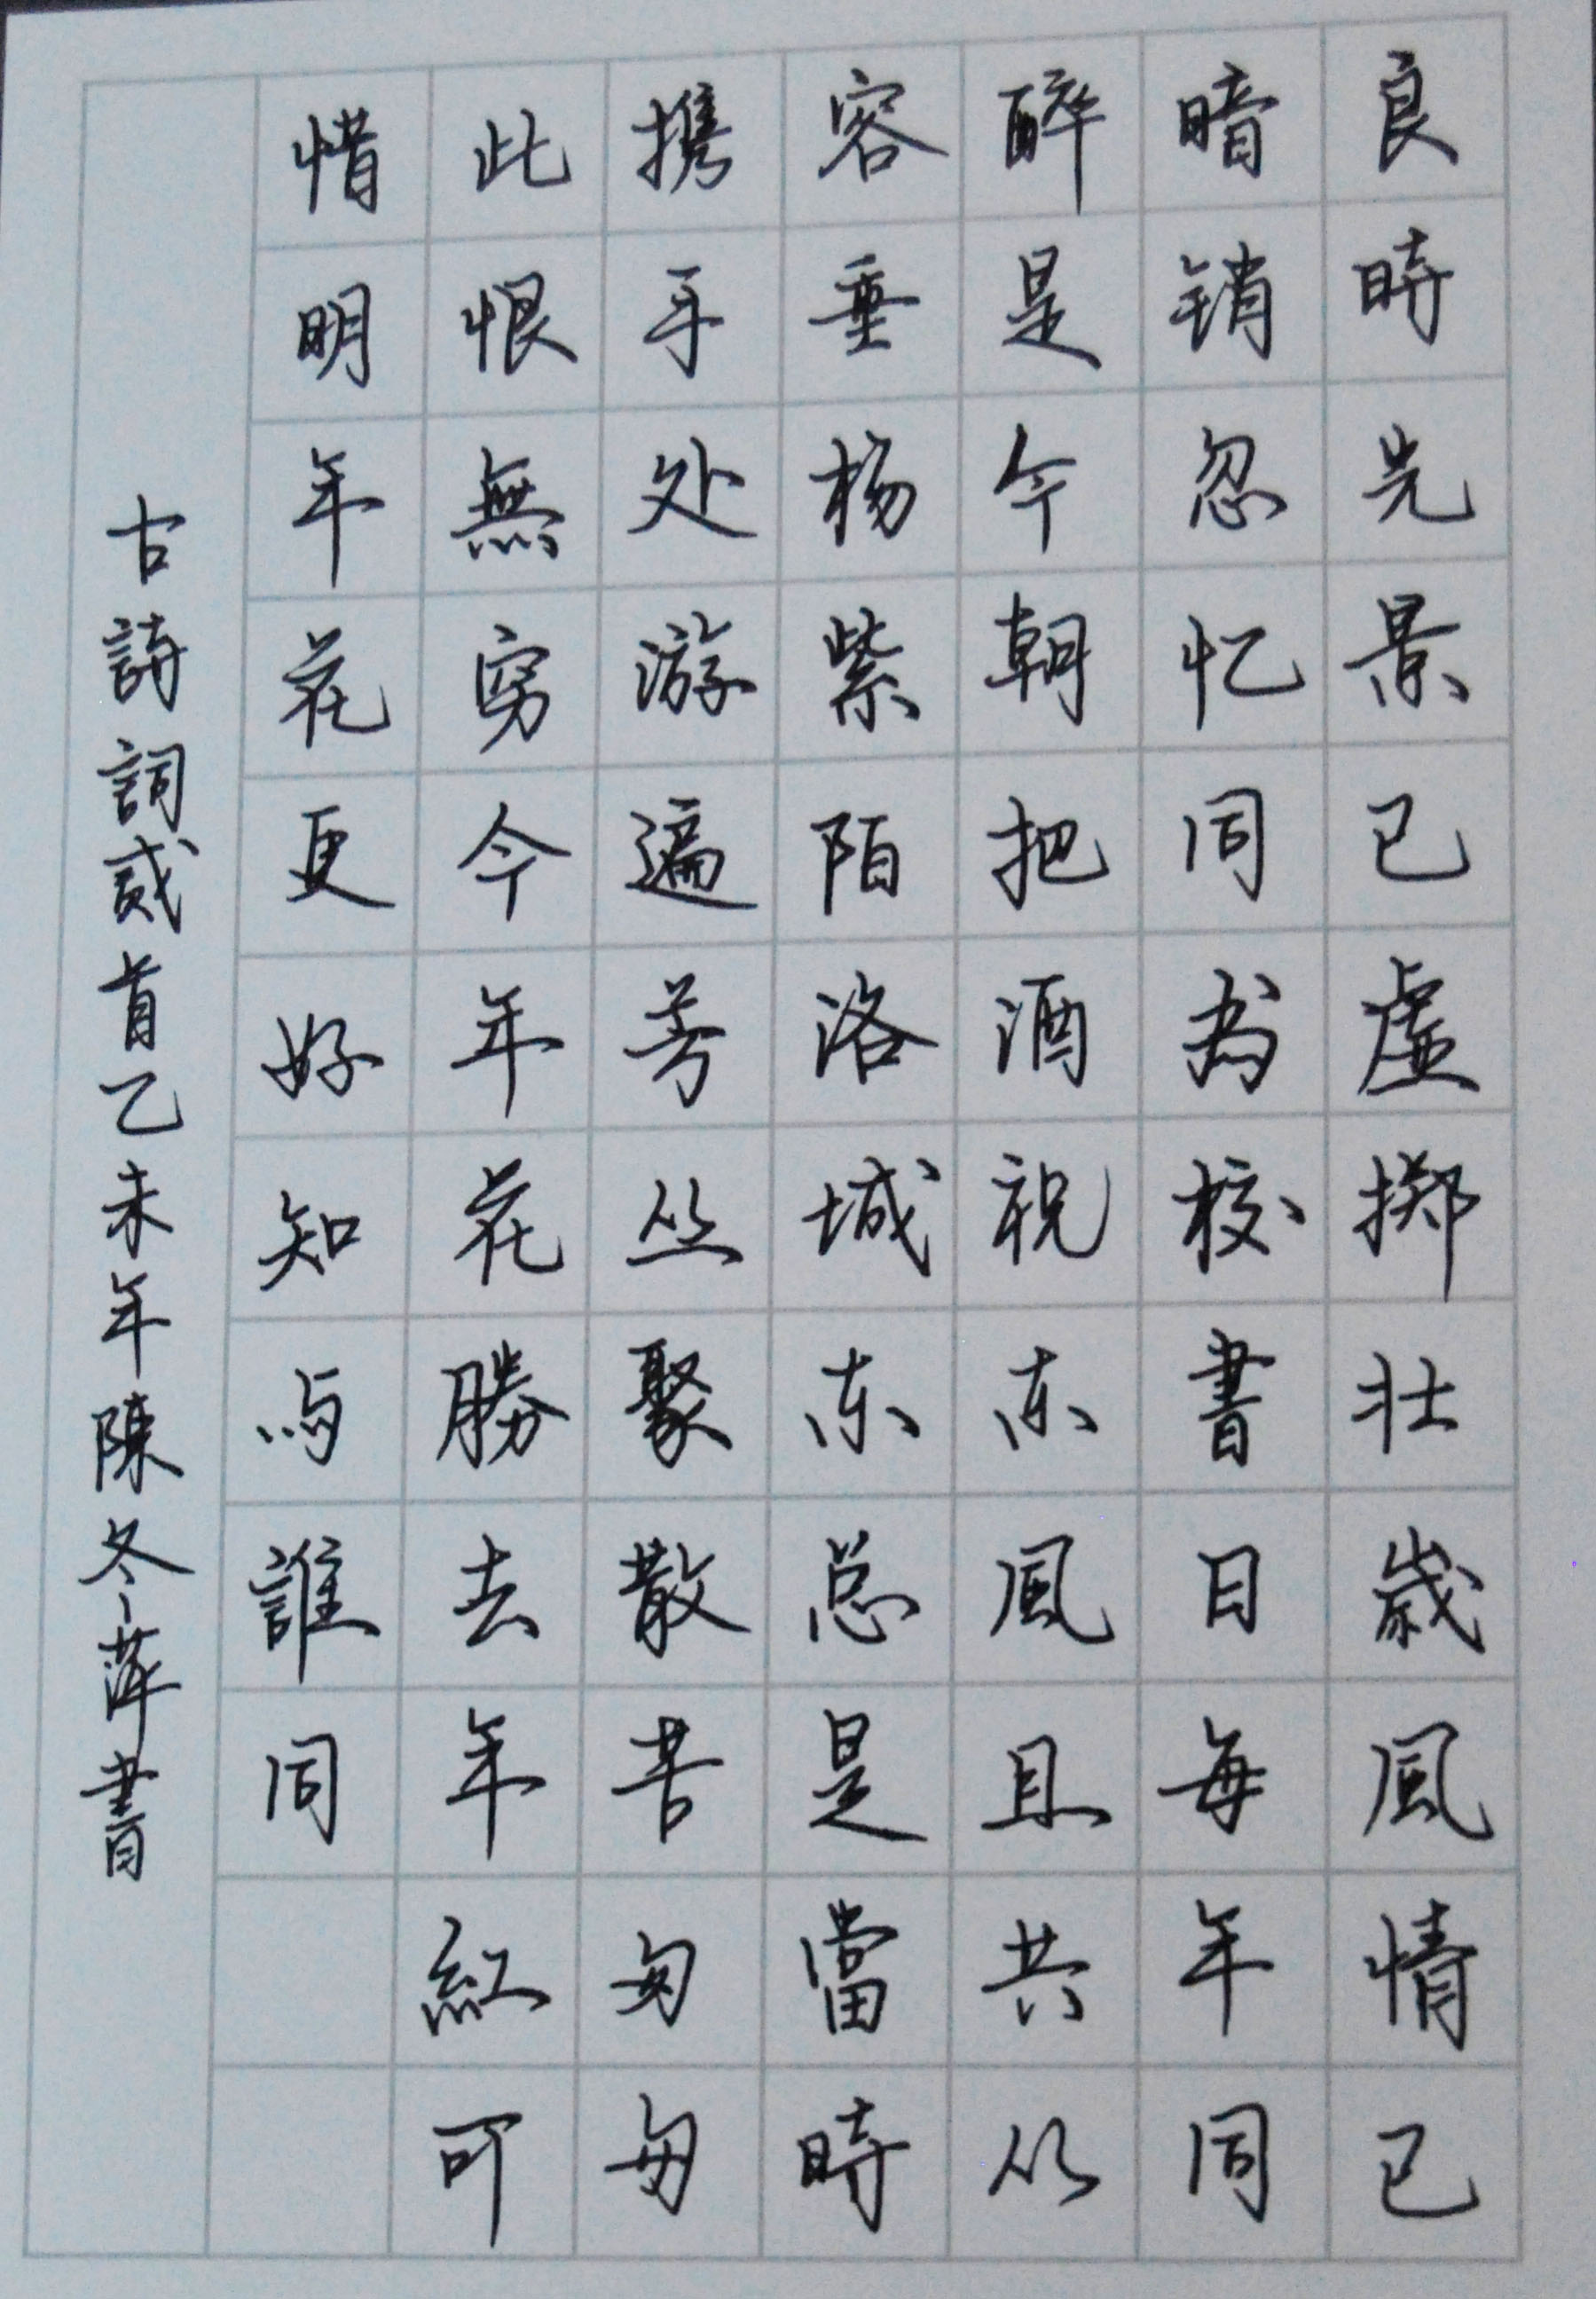 良時光景已虚掷壮歲風情已
暗销忽忆同为校書日每年同
醉是今朝把酒祝东風且共从
容垂杨紫陌洛城东总是當時
携手处游遍芳丛聚散苦匆匆
此恨無穷今年花勝去年紅可
惜明年花更好知与誰同
古詩詞贰首乙未年陳冬萍書